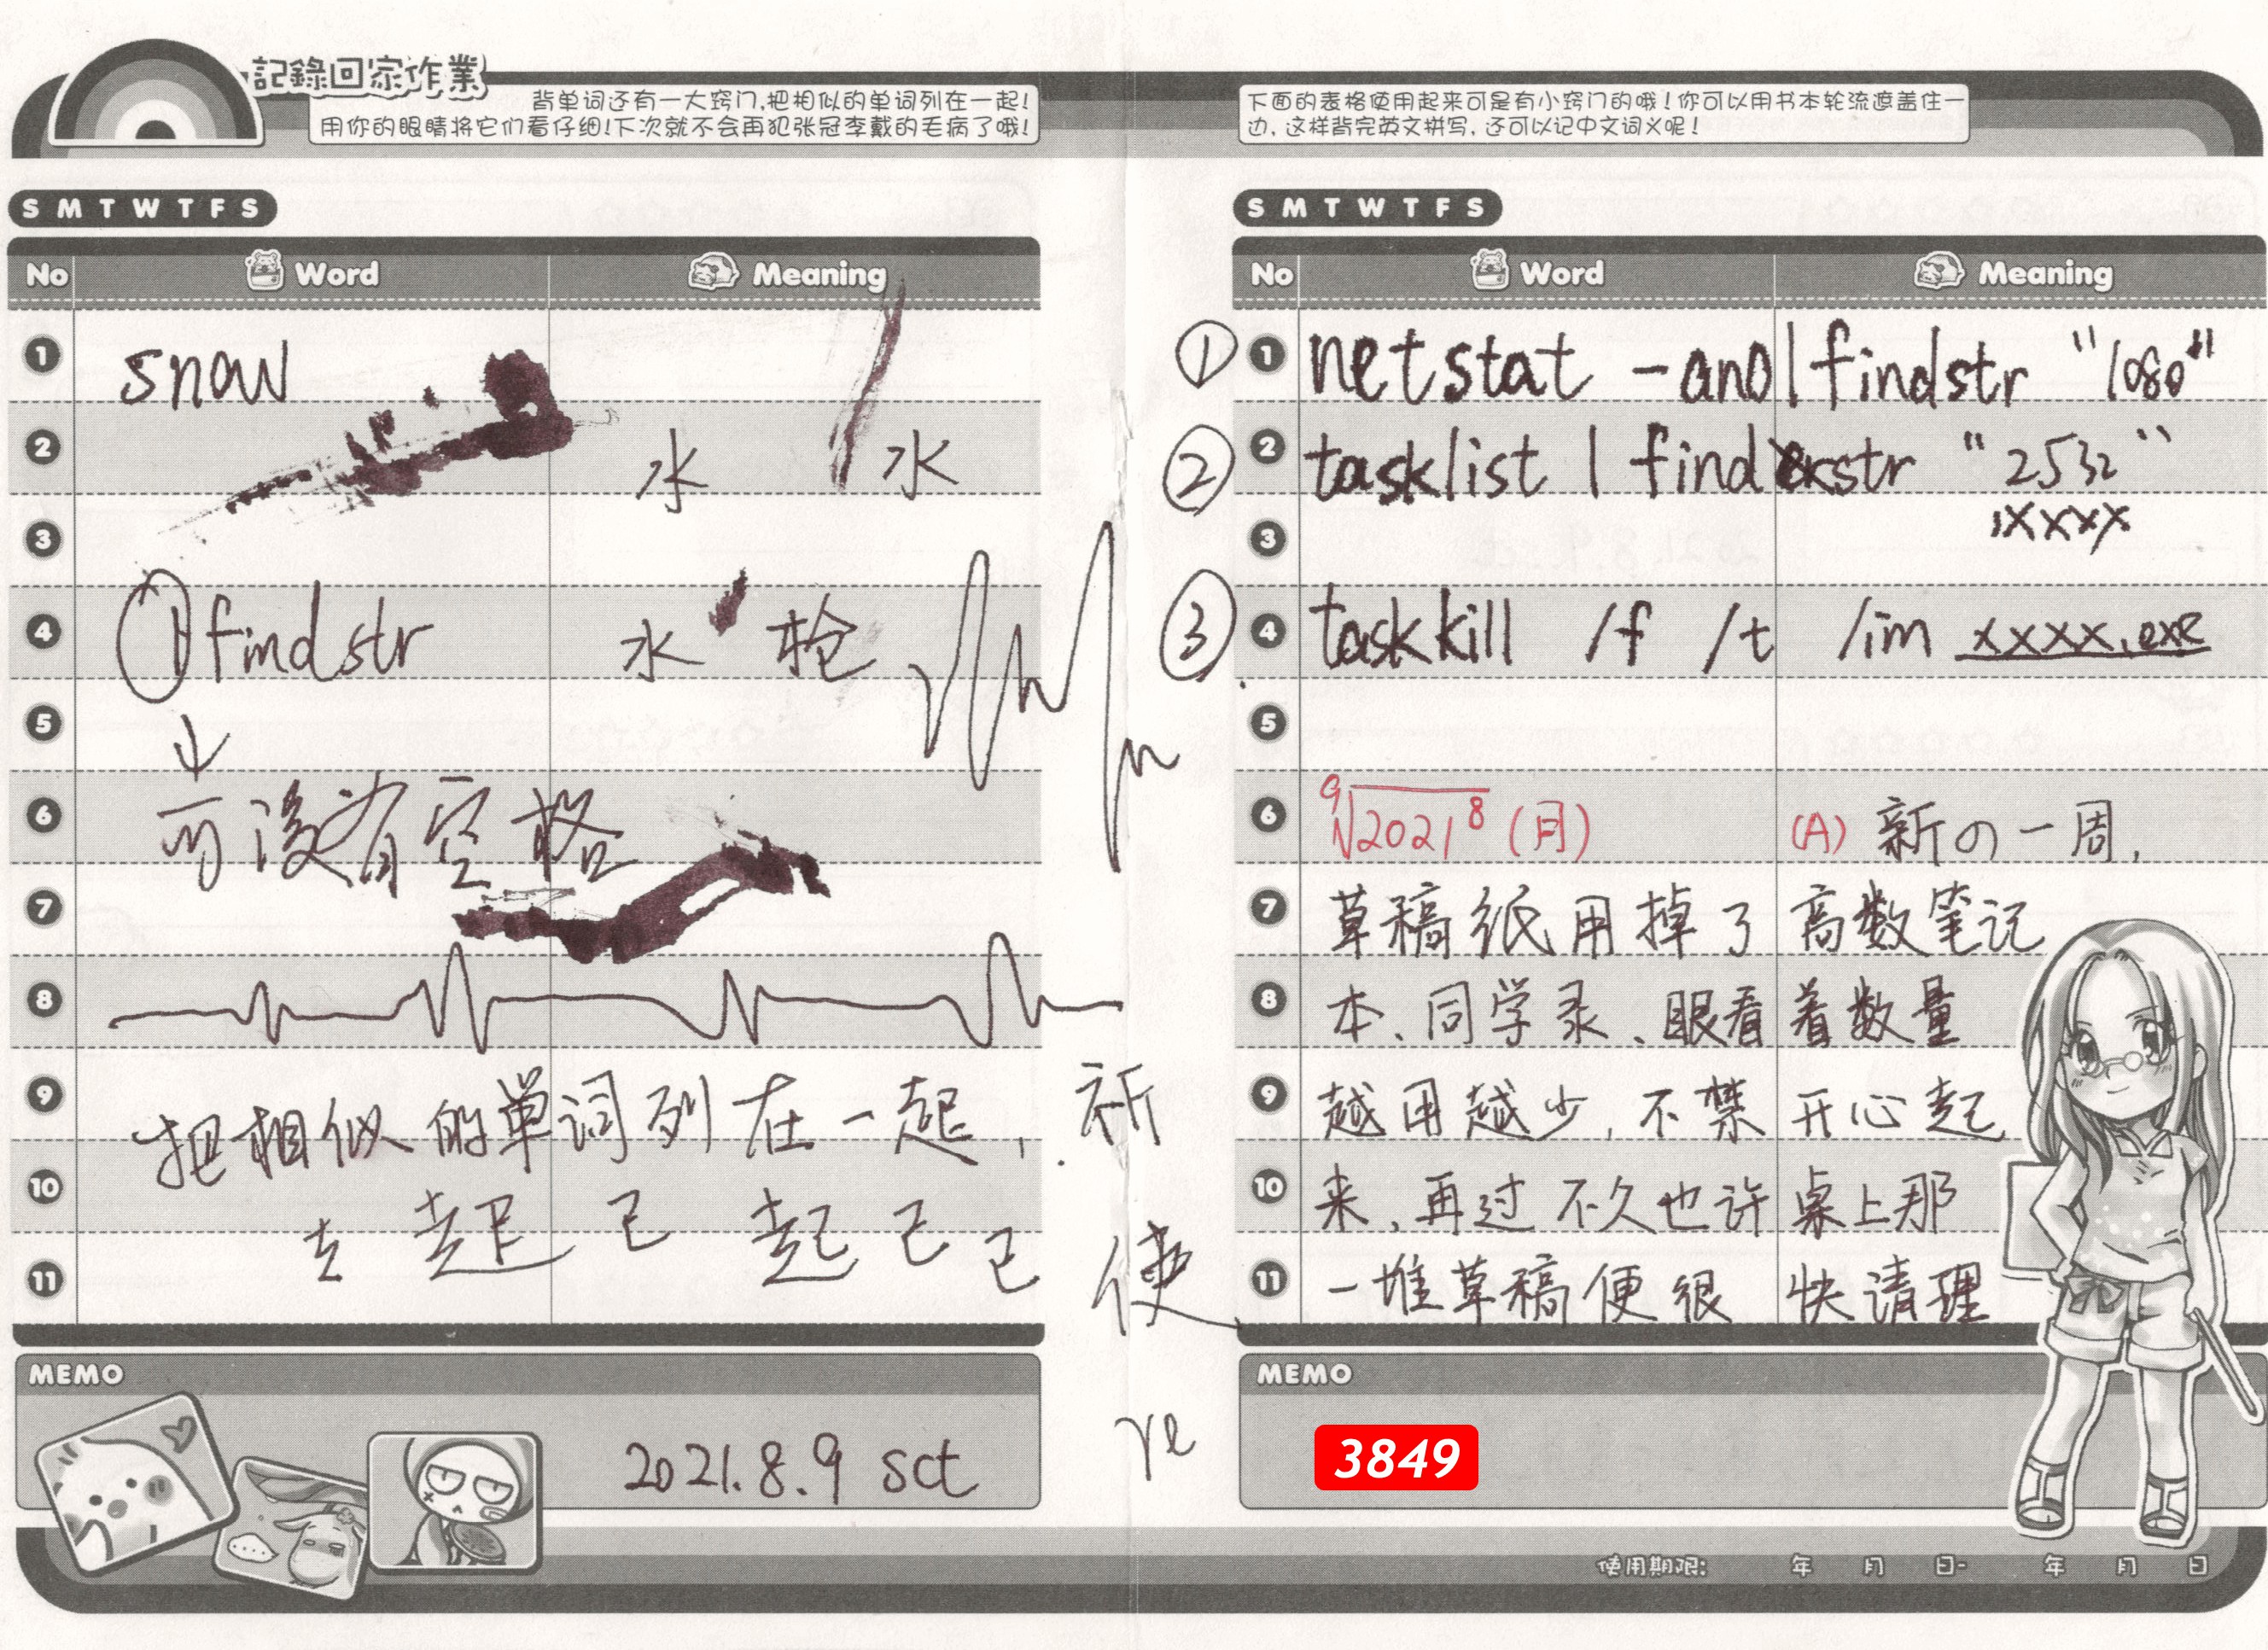 記錄回家作業
背单词还有一大窍门,把相似的单词列在一起!
用你的眼睛将它们看仔细!下次就不会再犯张冠李戴的毛病了哦!
S M T W T F S
No Word Meaning
1 snow
2 水 水
3
4 |findstr 水 枪
5
6 可没有空格
7
8
9 把相似的单词列在一起,
10 起 己 起 己 己
11
MEMO
2021.8.9 sct
下面的表格使用起来可是有小窍门的哦!你可以用书本轮流遮盖住一
边,这样背完英文拼写,还可以记中文词义呢!
S M T W T F S
No Word Meaning
① 1 netstat -ano|findstr "1080"
② 2 tasklist | findstr "2532"
3 xxxx
③ 4 taskkill /f /t /im xxxx.exe
5
6 9√2021⁸ (月) (A) 新の一周,
7 草稿纸用掉了高数笔记
8 本、同学录、眼看着数量
9 越用越少,不禁开心起
10 来,再过不久也许桌上那
11 一堆草稿便很快请理
MEMO
3849
使用期限: 年 月 日- 年 月 日